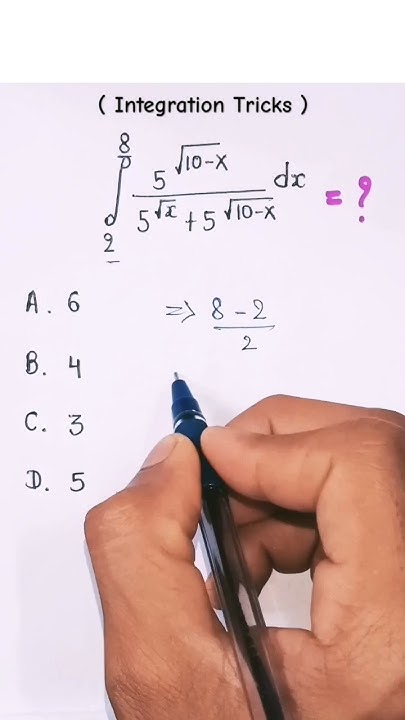 ( Integration Tricks )
∫₂⁸ 5^√(10-x) / (5^√x + 5^√(10-x)) dx = ?
A. 6
⇒ 8 - 2 / 2
B. 4
C. 3
D. 5